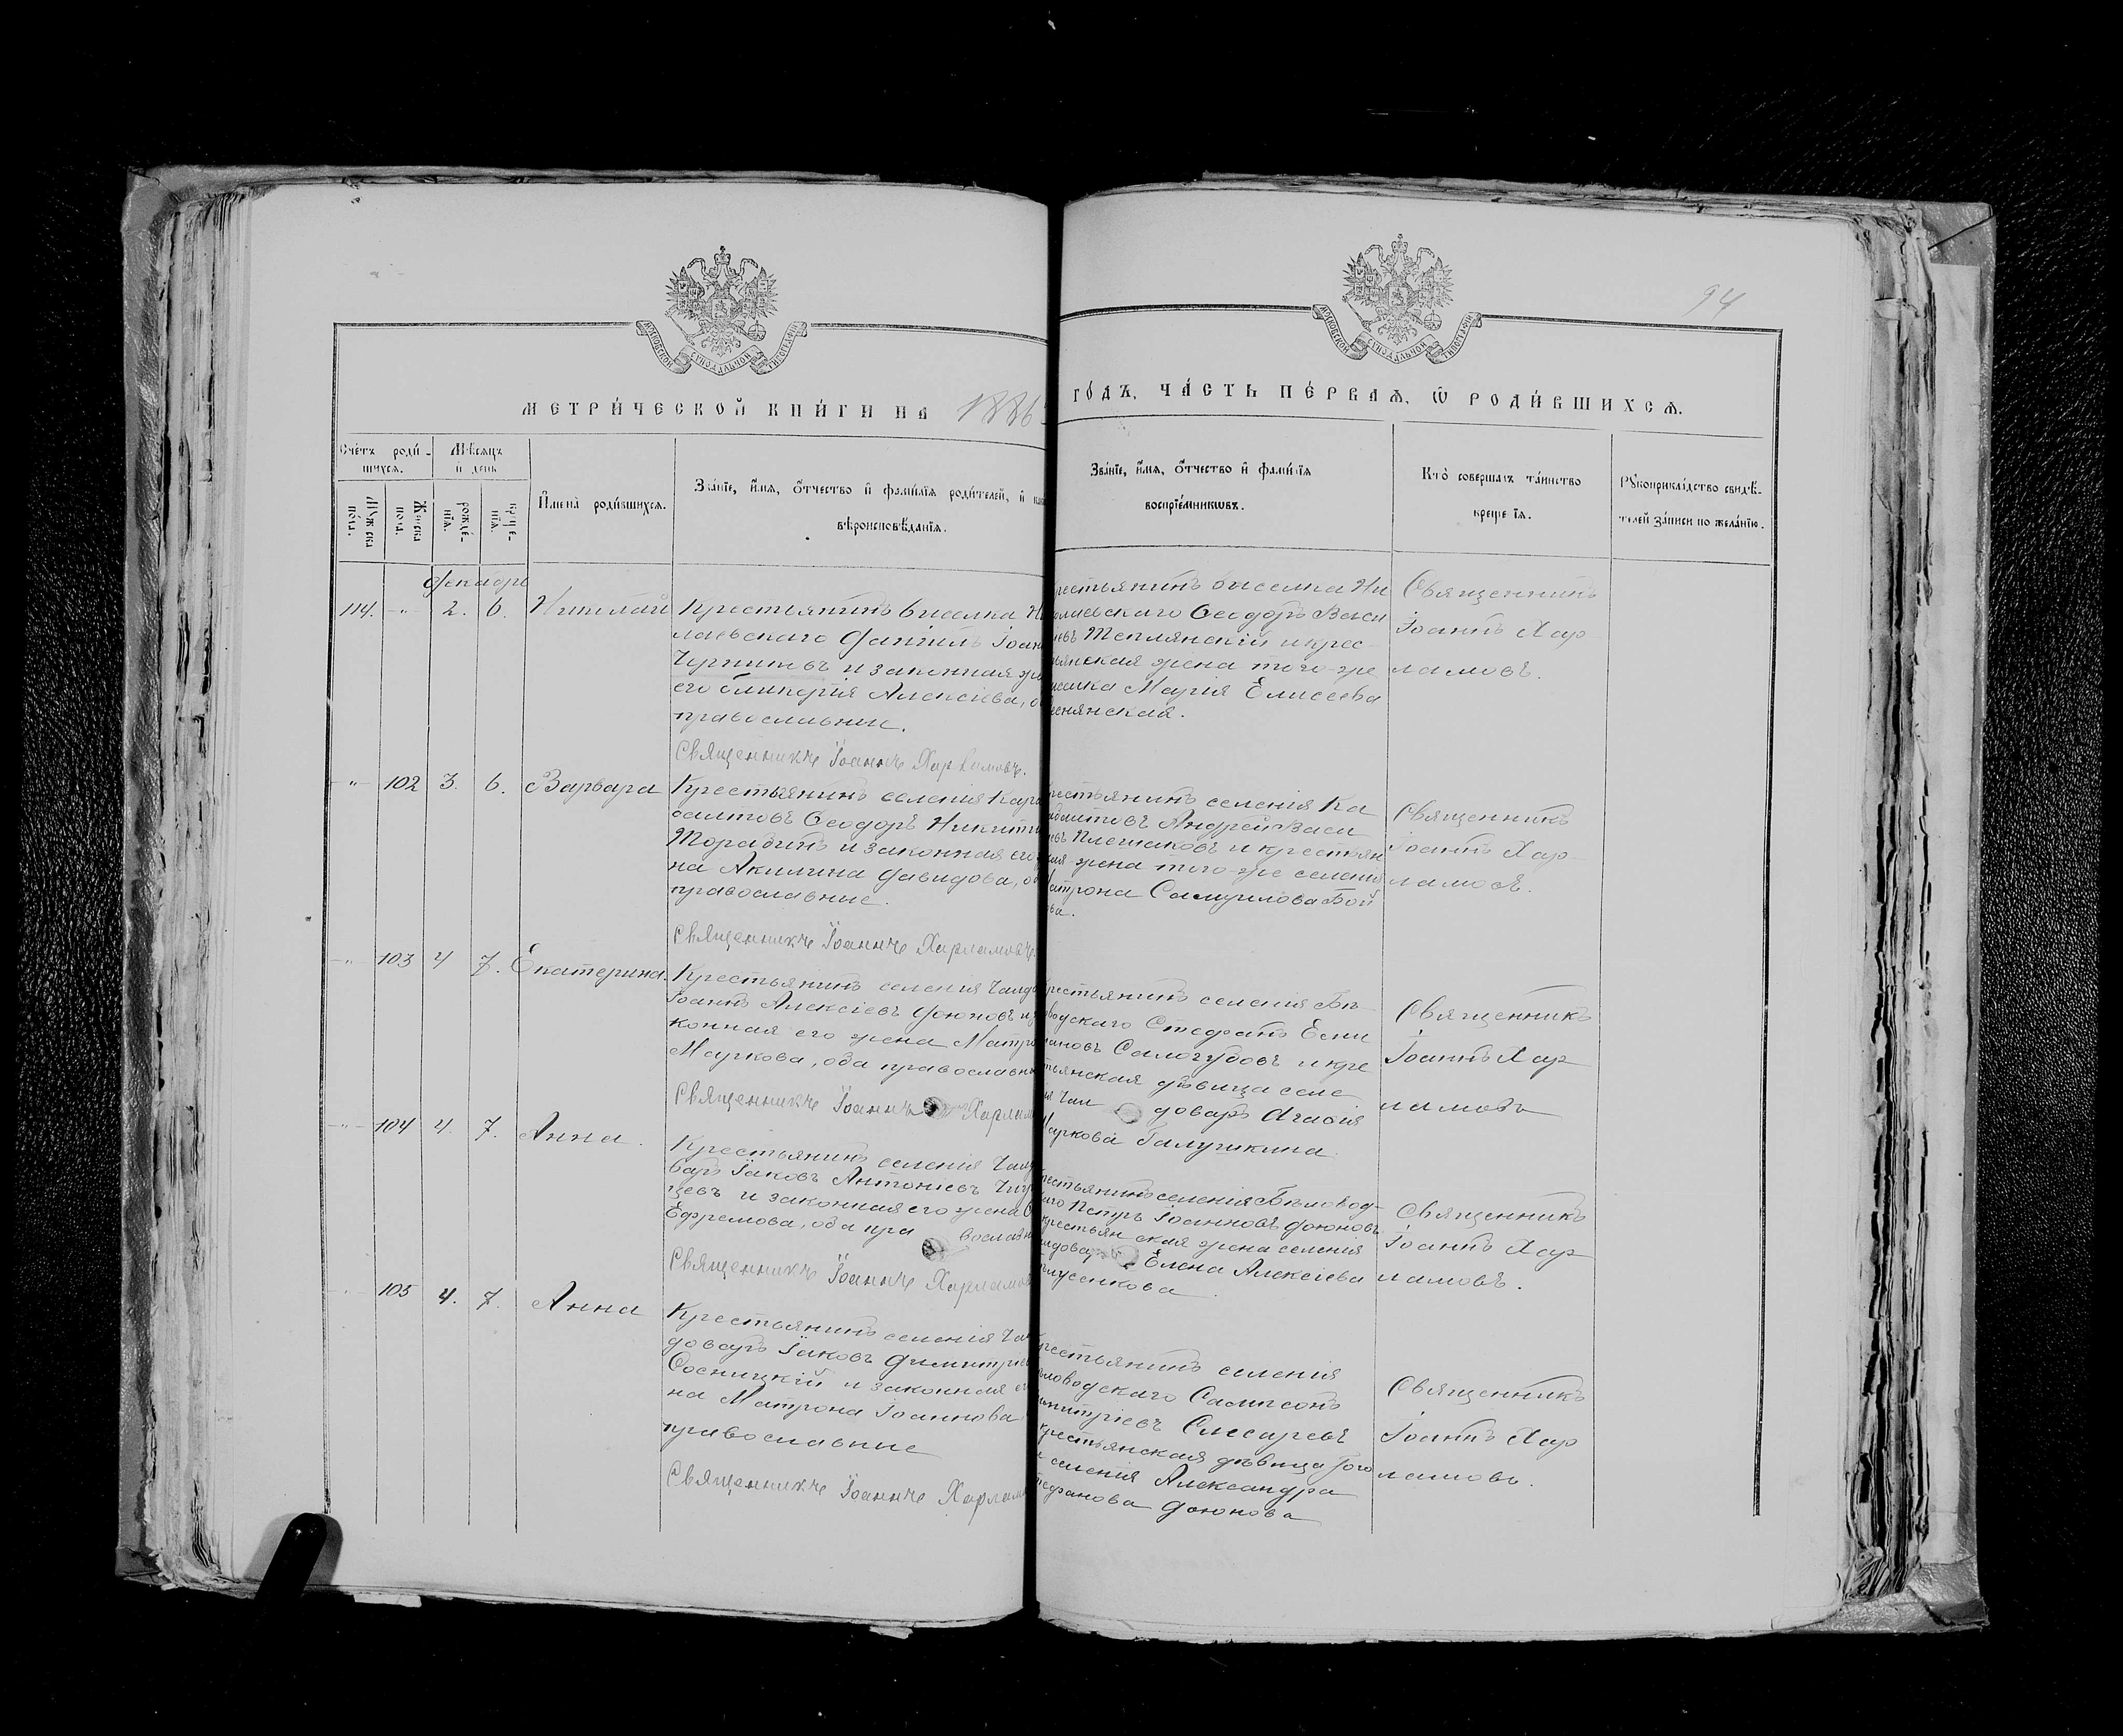 94
МЕТРИЧЕСКОЙ КНИГИ НА 1886
ГОДЪ, ЧАСТЬ ПЕРВАЯ, Ѡ РОДИВШИХСЯ.
Счетъ роди-
шихся.
Мѣсяцъ
и день
Мужеска
пола.
Женска
пола.
рожде-
нїя.
креще-
нїя.
Имена родившихся.
Званїе, имя, отчество и фамилїя родителей, и
вѣроисповѣданїя.
Званїе, имя, отчество и фамилїя
воспрїемниковъ.
Кто совершалъ таинство
креще їя.
Рукоприкладство свидѣ-
телей записи по желанїю.
Декабрь
114. -"- 2. 6. Николай
Крестьянинъ выселка Ни
лаевскаго Даніилъ Іоан
и законная же
его Гликерія Алексіева, о
православные.
Священникъ Іоаннъ Харламовъ.
рестьянинъ выселка Ни
олаевскаго Ѳеодоръ Васи
евъ Теплянскій и крес-
ьянская жена того-же
ыселка Марія Елисеева
Священникъ
Іоаннъ Хар
ламовъ.
-"- 102 3. 6. Варвара
Крестьянинъ селенія Кара
балтовъ Ѳеодоръ Никити
и законная его
на Акилина Давидова, о
православные.
Священникъ Іоаннъ Харламовъ.
рестьянинъ селенія Ка
абалтовъ Андрей Васи
евъ Плешаковъ и крестьян
кая жена того-же селенія
атрона Самуилова Бой
ва.
Священникъ
Іоаннъ Хар-
ламовъ.
-"- 103 4 7. Екатерина.
Крестьянинъ селенія Чалдо
Іоаннъ Алексіевъ Доюновъ и за
конная его жена Матро
Маркова, оба православн
Священникъ Іоаннъ Харлам
рестьянинъ селенія Бѣ-
оводскаго Стефанъ Есип
ановъ Самогудовъ и кре
тьянская дѣвица селе
ія Чал доваръ Агафія
Маркова Галушкина.
Священникъ
Іоаннъ Хар
ламовъ
-"- 104 4. 7. Анна.
Крестьянинъ селенія Чалд
варъ Іаковъ Антоніевъ
цевъ и законная его жена
Ефремова, оба пра вославн
Священникъ Іоаннъ Харламов
рестьянинъ селенія Бѣловод-
каго Петръ Іоанновъ Доюновъ
крестьян ская жена селенія
алдовар Елена Алексіева
Священникъ
Іоаннъ Хар
ламовъ.
105 4. 7. Анна
Крестьянинъ селенія Чал
доваръ Іаковъ Димитріев
Сосницкій и законная е
на Матрона Іоаннова
православные
Священникъ Іоаннъ Харлам
рестьянинъ селенія
ѣловодскаго Сампсонъ
имитріевъ Слесаревъ
крестьянская дѣвица того
селенія Александра
тефанова Доюнова
Священникъ
Іоаннъ Хар
ламовъ.